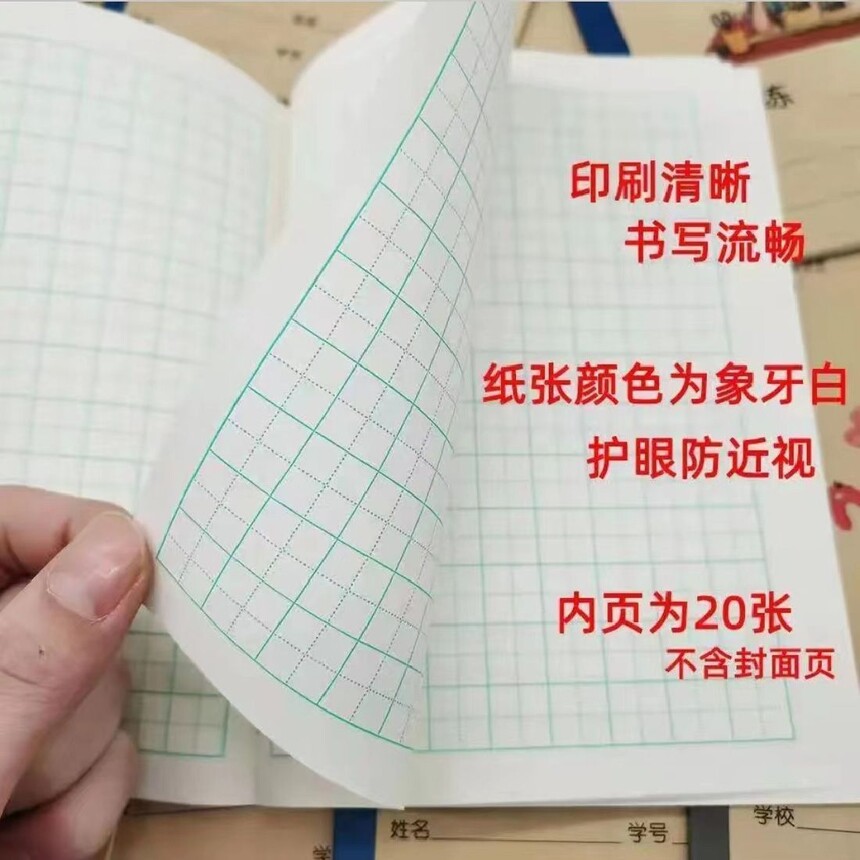 练
印刷清晰
书写流畅
纸张颜色为象牙白
护眼防近视
内页为20张
不含封面页
姓名
学号
学校
学